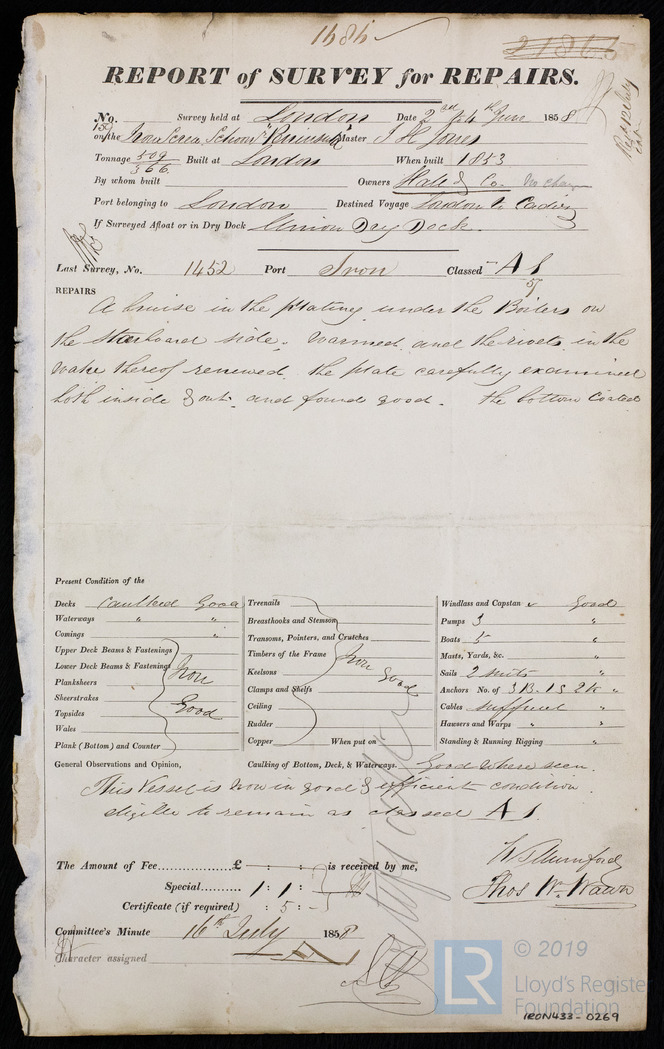 1686
21866
REPORT of SURVEY for REPAIRS.
No. Survey held at London Date 2nd & 4th June 1858
on the Iron Screw Schooner "Peninsula" Master J H Jones
Tonnage 509 Built at London When built 1853
366
By whom built Owners Hall & Co. No change
Port belonging to London Destined Voyage London to Cadiz
If Surveyed Afloat or in Dry Dock Union Dry Dock.
Last Survey, No. 1452 Port Iron Classed A 1
REPAIRS
A bruise in the plating under the Boilers on
the starboard side. Warmed and the rivets in the
wake thereof renewed. the plate carefully examined
both inside & out. and found good. the bottom Coated
Present Condition of the
Decks Caulked Good
Waterways " "
Comings "
Upper Deck Beams & Fastenings
Lower Deck Beams & Fastenings Iron
Planksheers
Sheerstrakes
Topsides Good
Wales
Plank (Bottom) and Counter
Treenails
Breasthooks and Stemson
Transoms, Pointers, and Crutches
Timbers of the Frame Iron
Keelsons Good
Clamps and Shelfs
Ceiling
Rudder
Copper When put on
Windlass and Capstan Good
Pumps 3 "
Boats 5 "
Masts, Yards, &c. "
Sails 2 suits "
Anchors No. of 3 B. 1 S 2 K "
Cables sufficient "
Hawsers and Warps " "
Standing & Running Rigging "
General Observations and Opinion, Caulking of Bottom, Deck, & Waterways. Good where seen.
This Vessel is now in good & efficient condition.
eligible to remain as classed A 1.
The Amount of Fee.................£ : : is received by me,
Special.......... 1 : 1 :
Certificate (if required) : 5 : -
Thos W. Wawn
Committee's Minute 16th July 1858
Character assigned
© 2019
LR Lloyd's Register
Foundation
IRON433-0269